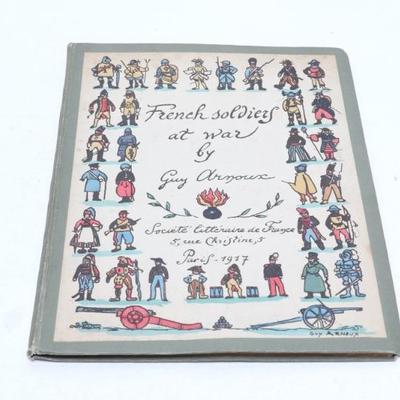 French soldiers
at war
by
Guy Arnoux
Société littéraire de France
5, rue Christine, 5
Paris - 1917
GUY ARNOUX